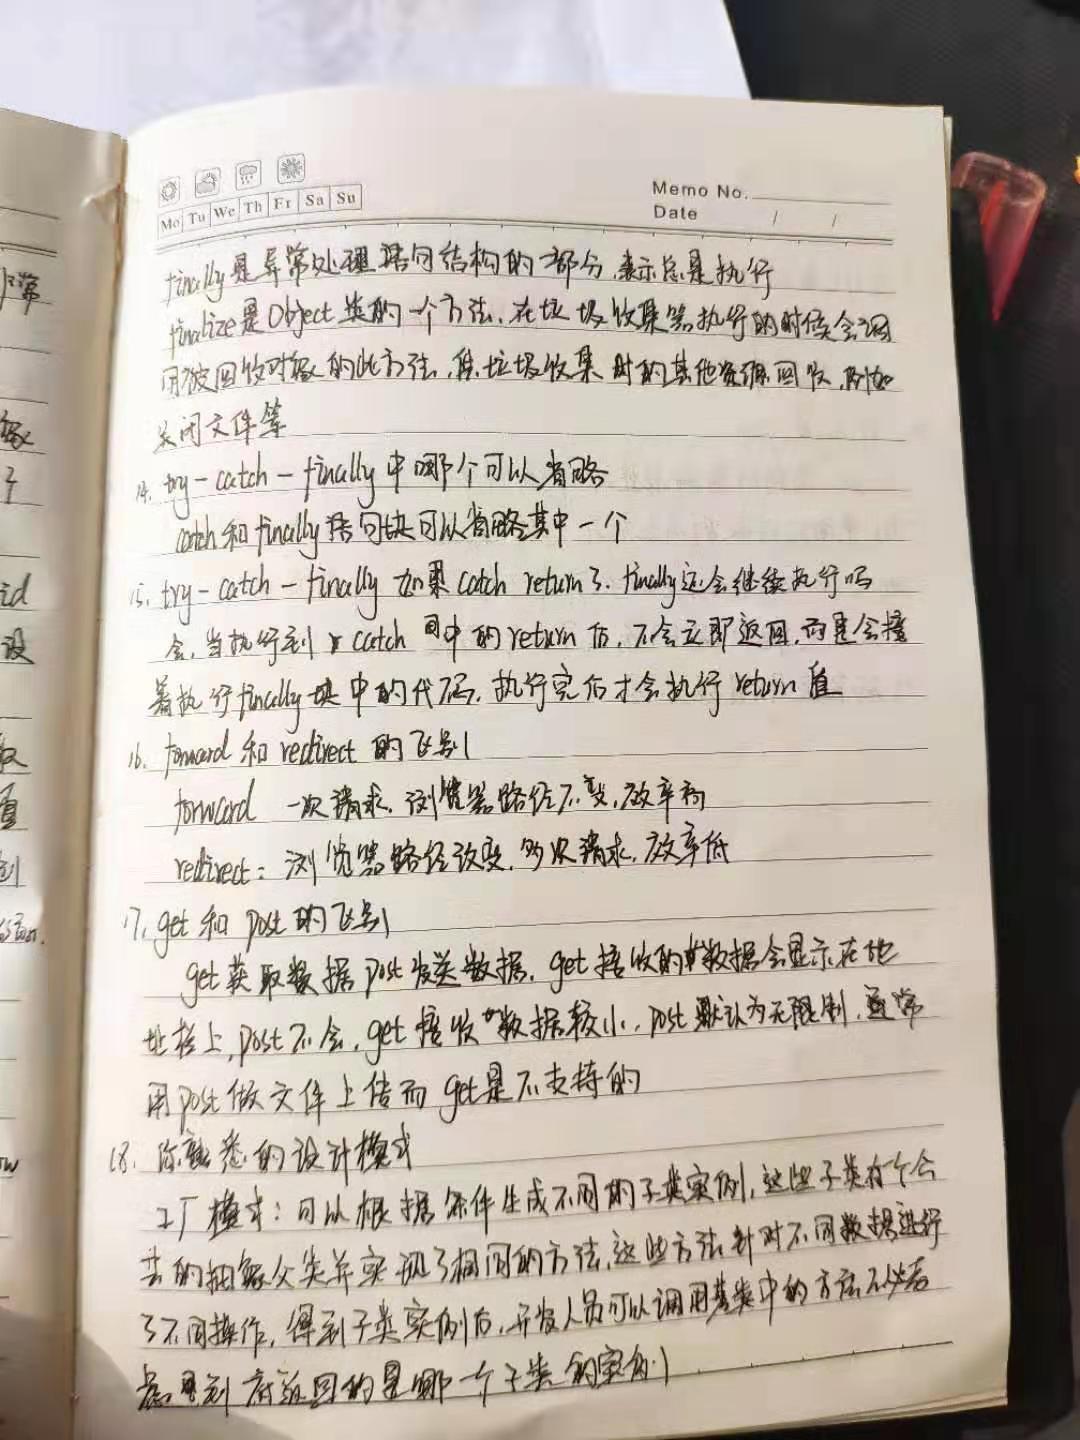 Mo Tu We Th Fr Sa Su
Memo No.
Date / /
finally是异常处理语句结构的一部分,表示总是执行
finalize是Object类的一个方法,在垃圾收集器执行的时候会调
用被回收对象的此方法,供垃圾收集时的其他资源回收,例如
关闭文件等
14. try-catch-finally中哪个可以省略
catch和finally语句块可以省略其中一个
15. try-catch-finally如果catch return了,finally还会继续执行吗
会,当执行到catch中的return后,不会立即返回,而是会接
着执行finally块中的代码,执行完后才会执行return值
16. forward和redirect的区别
forward 一次请求,浏览器路径不变,效率高
redirect:浏览器路径改变,多次请求,效率低
17. get和post的区别
get获取数据post发送数据,get接收的数据会显示在地
址栏上,post不会,get接收数据较小,post默认为无限制,通常
用post做文件上传而get是不支持的
18. 你熟悉的设计模式
工厂模式:可以根据条件生成不同的子类实例,这些子类有个公
共的抽象父类并实现了相同的方法,这些方法针对不同数据进行
了不同操作,得到子类实例后,开发人员可以调用基类中的方法不必考
虑到底返回的是哪一个子类的实例
常
象
子
id
设
值
到